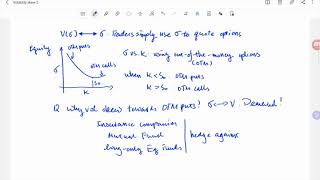 V(σ) ⟷ σ Traders simply use σ to quote options
Equity
OTM puts
σ
OTM calls
S₀
K
σ vs. K using out-of-the-money options
(OTM)
when K < S₀ OTM puts
K > S₀ OTM calls
Q Why vol skew towards OTM puts? σ ⟷ V. Demand!
Insurance companies
Mutual Fund
long-only Eq Funds
hedge against